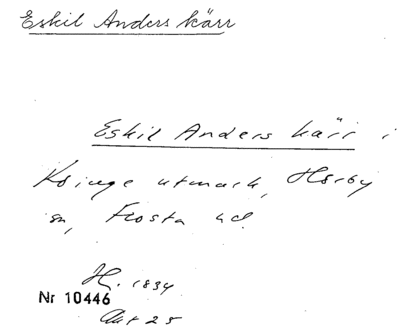 Eskil Anders kärr
Eskil Anders kärr i
Koinge utmark, Hörby
sn, Frosta hd.
H. 1834
Nr 10446
Akt 25